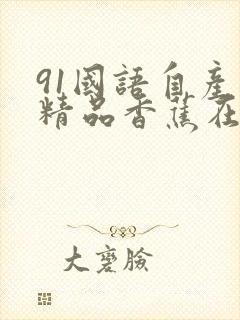 91國語自產
精品香蕉在
大麥臉